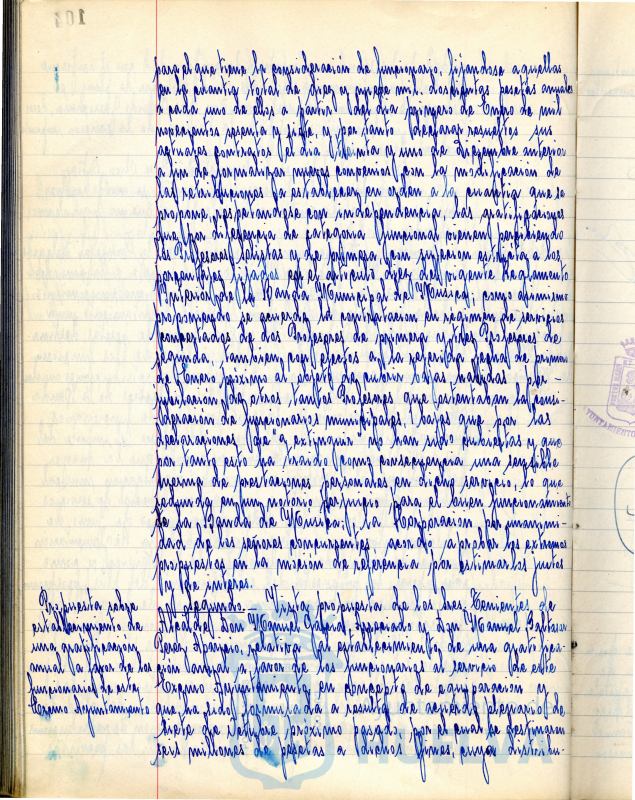 104
para el que tiene la consideración de funcionario, fijándose aquellas
en la cuantía total de diez y nueve mil doscientas pesetas anuales
a cada uno de ellos a partir del día primero de Enero de mil
novecientos sesenta y siete, y por tanto declarar resueltos sus
actuales contratos el día treinta y uno de Diciembre anterior
a fin de formalizar nuevos convenios con la modificación de
las retribuciones ya establecidas en orden a la cuantía que se
propone, respetándose con independencia, las gratificaciones
que por diferencia de categoría funcional vienen percibiendo
los Profesores Solistas y de primera con sujeción estricta a los
porcentajes fijados en el artículo diez del vigente Reglamento
Interior de la Banda Municipal de Música; como asimismo
proponiendo se acuerde la contratación en régimen de servicios
contratados de dos Profesores de primera y tres Profesores de
segunda, también con efectos a la referida fecha de primero
de Enero próximo al objeto de cubrir bajas habidas por
jubilación de otros tantos Profesores que ostentaban la consi-
deración de funcionarios municipales, bajas que por las
declaraciones de "a extinguir" no han sido cubiertas y que
por tanto esto ha traído como consecuencia una sensible
merma de prestaciones personales en dicho servicio, lo que
redunda en un notorio perjuicio para el buen funcionamiento
de la Banda de Música, la Corporación, por unanimi-
dad de los señores concurrentes, acordó aprobar los extremos
propuestos en la moción de referencia por estimarlos justos
y de interés.
Propuesta sobre
establecimiento de
una gratificación
anual a favor de los
funcionarios de este
Excmo Ayuntamiento
Segundo.- Vista propuesta de los Sres. Tenientes de
Alcalde, Don Manuel y Don Manuel
Pérez Aparicio, relativa al establecimiento de una gratifica-
ción anual a favor de los funcionarios al servicio de este
Excmo Ayuntamiento en concepto de equiparación y
que ha sido formulada a resulta de acuerdo plenario de
siete de Octubre próximo pasado, por el cual se destinaron
seis millones de pesetas a dichos fines cuya distribu-
HUELVA